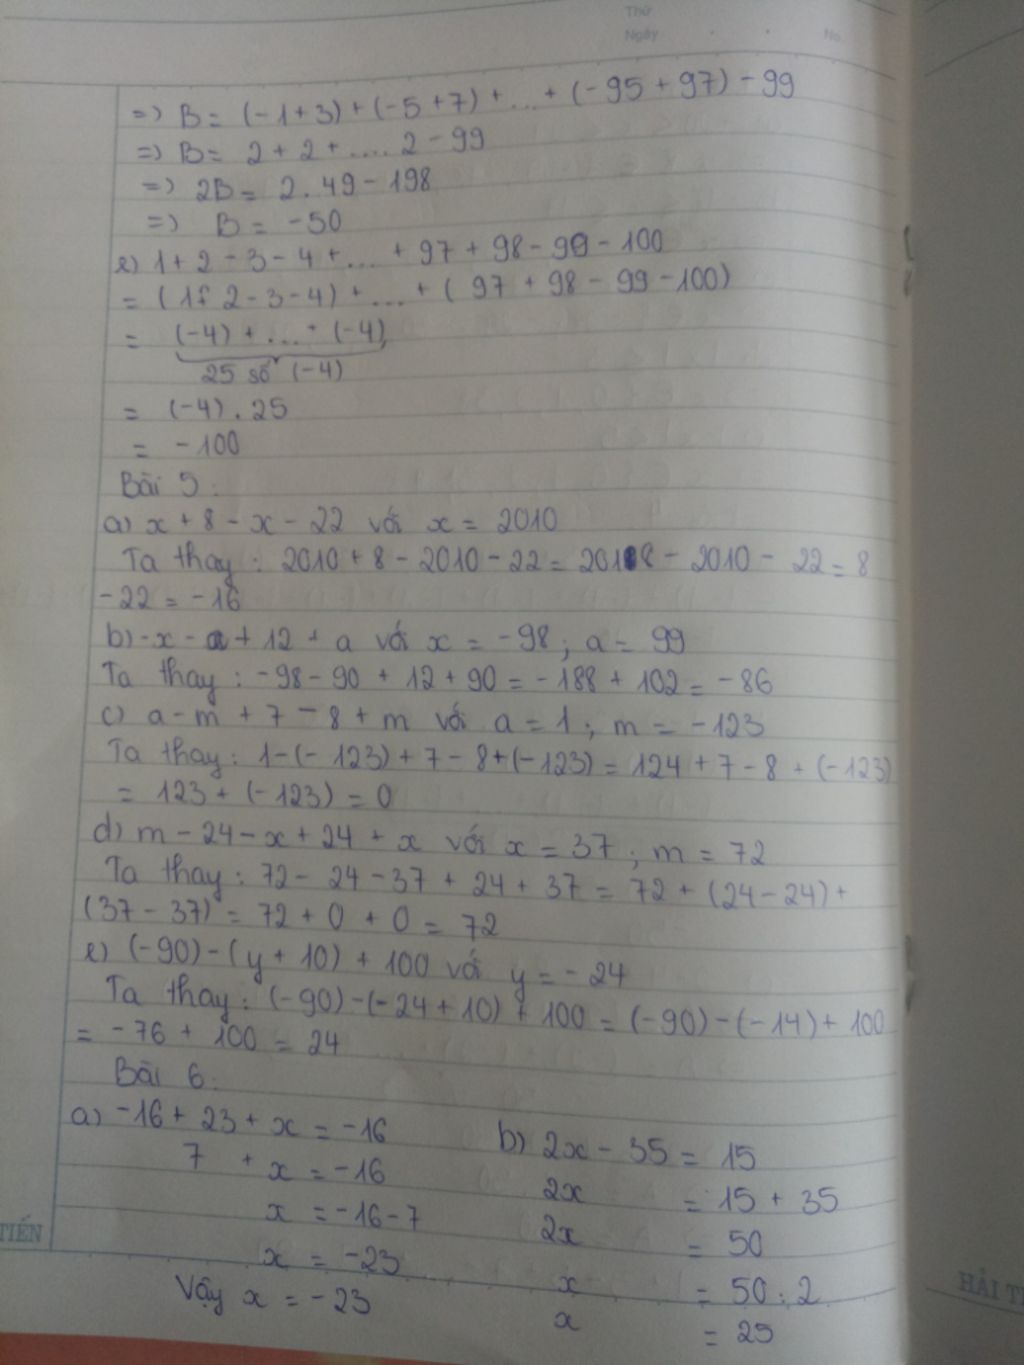 Thứ
Ngày
No
=) B = (-1+3)+(-5+7)+...+(-95+97)-99
=) B = 2+2+....2-99
=) 2B = 2.49-198
=) B = -50
e) 1+2-3-4+...+97+98-99-100
= (1+2-3-4)+...+(97+98-99-100)
= (-4)+...+(-4)
25 số (-4)
= (-4).25
= -100
Bài 5:
a) x+8-x-22 với x = 2010
Ta thay: 2010+8-2010-22 = 2018-2010-22 = 8
-22 = -16
b) -x-a+12+a với x = -98; a = 99
Ta thay: -98-90+12+90 = -188+102 = -86
c) a-m+7-8+m với a = 1; m = -123
Ta thay: 1-(-123)+7-8+(-123) = 124+7-8+(-123)
= 123+(-123) = 0
d) m-24-x+24+x với x = 37; m = 72
Ta thay: 72-24-37+24+37 = 72+(24-24)+
(37-37) = 72+0+0 = 72
e) (-90)-(y+10)+100 với y = -24
Ta thay: (-90)-(-24+10)+100 = (-90)-(-14)+100
= -76+100 = 24
Bài 6:
a) -16+23+x = -16
7 + x = -16
x = -16-7
x = -23
Vậy x = -23
b) 2x-35 = 15
2x = 15+35
2x = 50
x = 50:2
x = 25
TIẾN
HẢI T